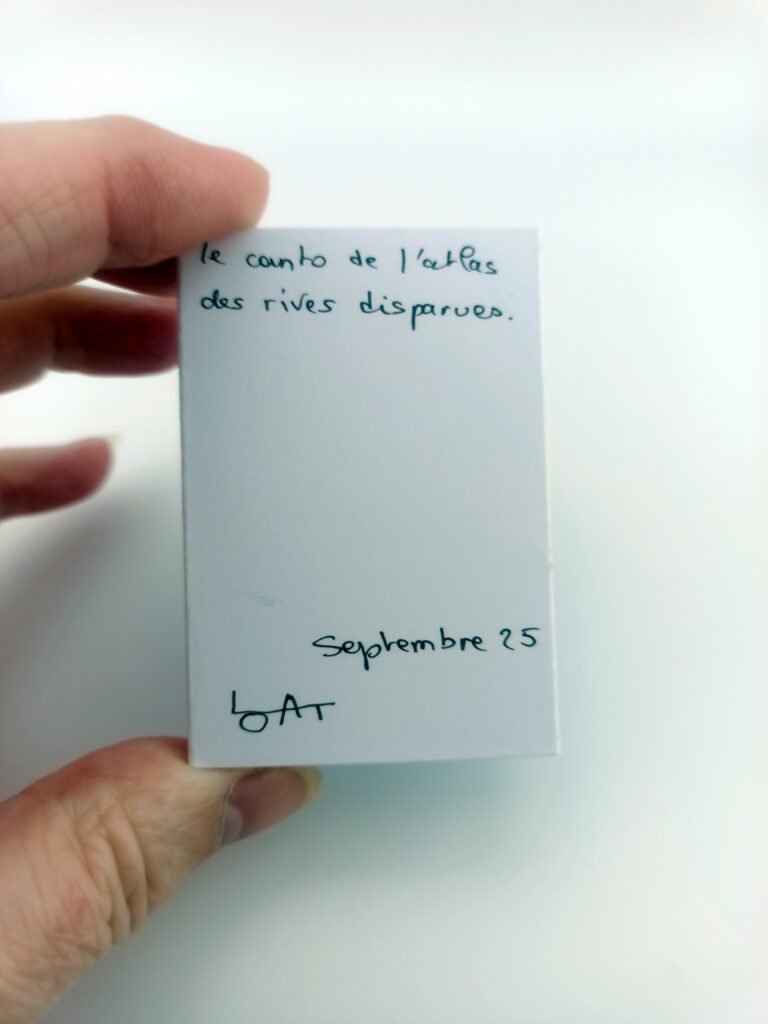 le canto de l'atlas
des rives disparues.
Septembre 25
LOAT